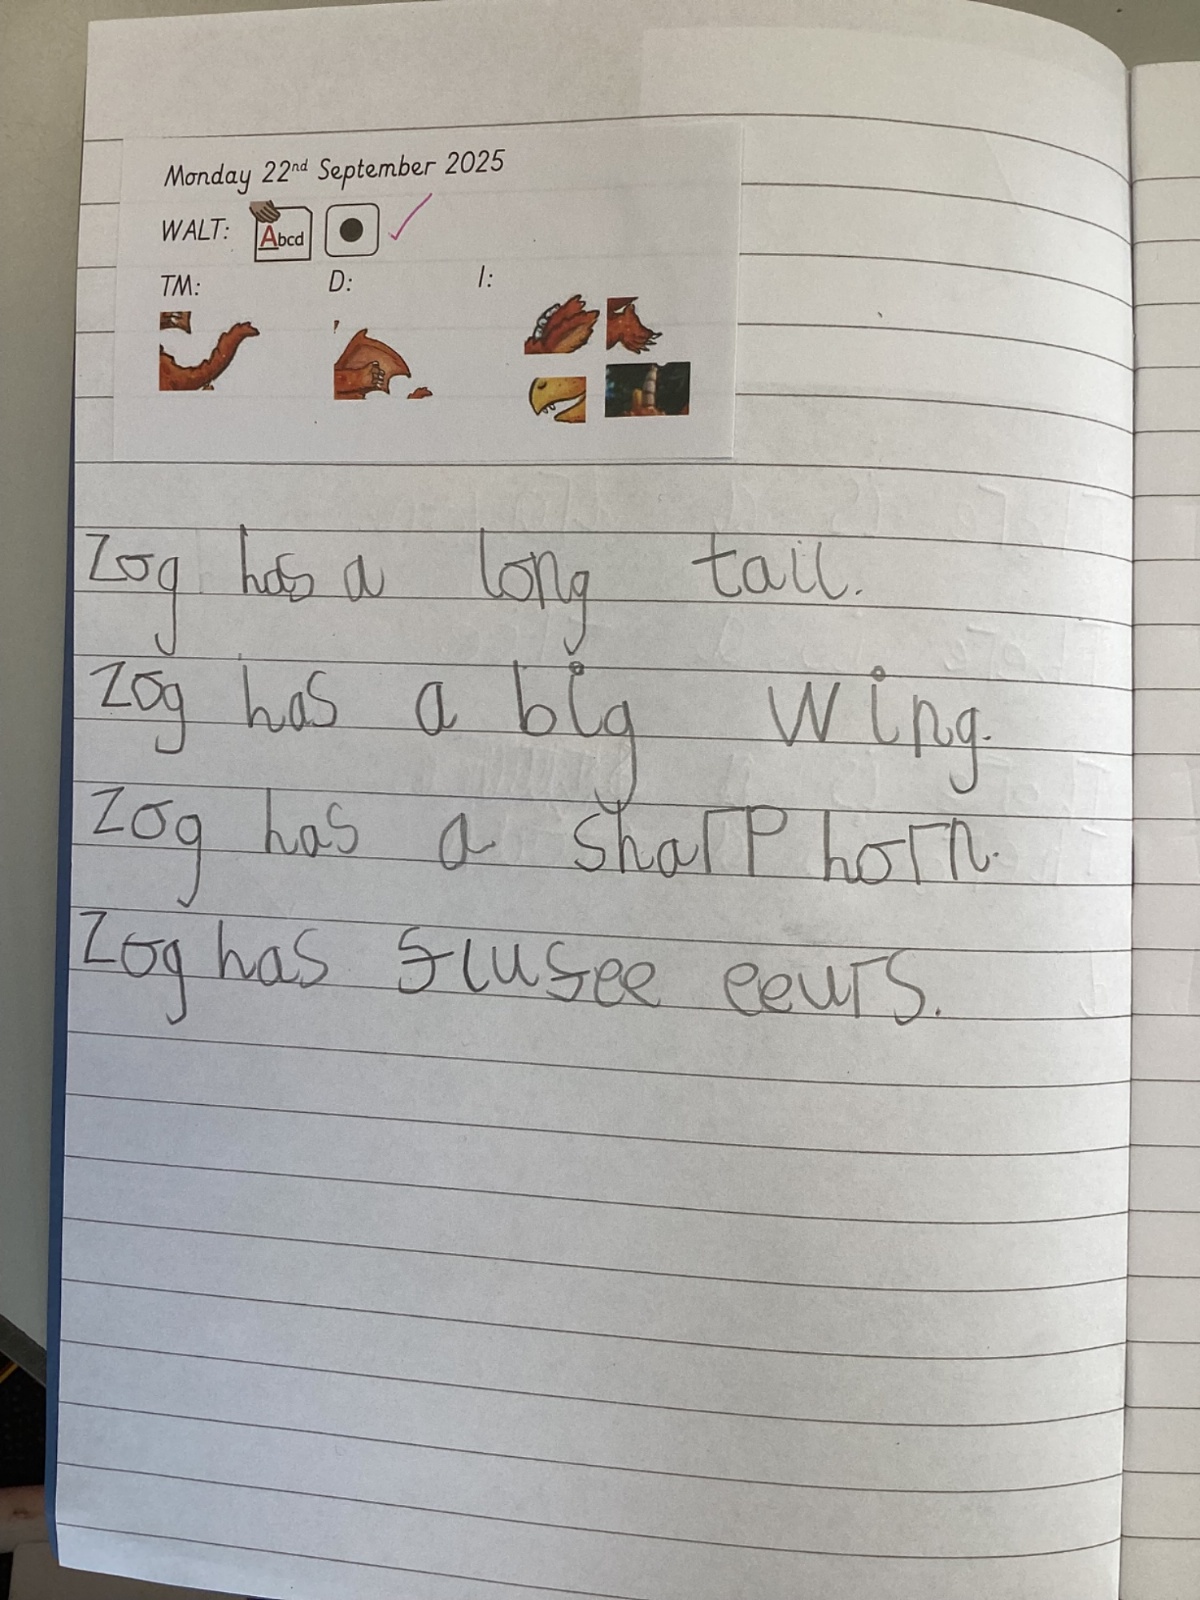 Monday 22nd September 2025
WALT: Abcd
TM: D: I:
Zog has a long tail.
Zog has a big wing.
Zog has a sharp horn.
Zog has flufee eeurs.